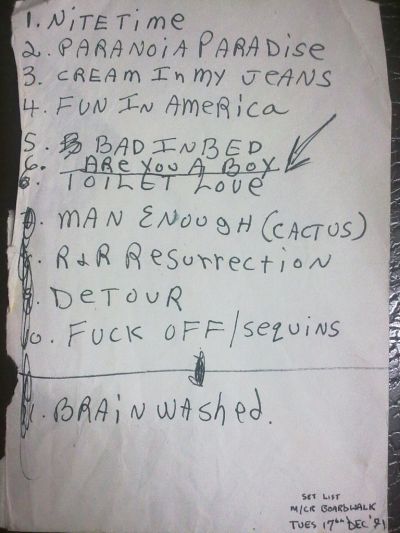 1. NiTE Time
2. PARANOiA PARADise
3. CREAM In my JEANS
4. FUN IN AmeRicA
5. BAD IN BED
6. ARe YoU A BoY
TOiLET LOVe
MAN ENougH (CACTUS)
R&R ResuRRection
DeTouR
0. FUCK OFF/sequins
BRAinwAshed.
SET LIST
M/CR BOARDWALK
TUES 17th DEC '91